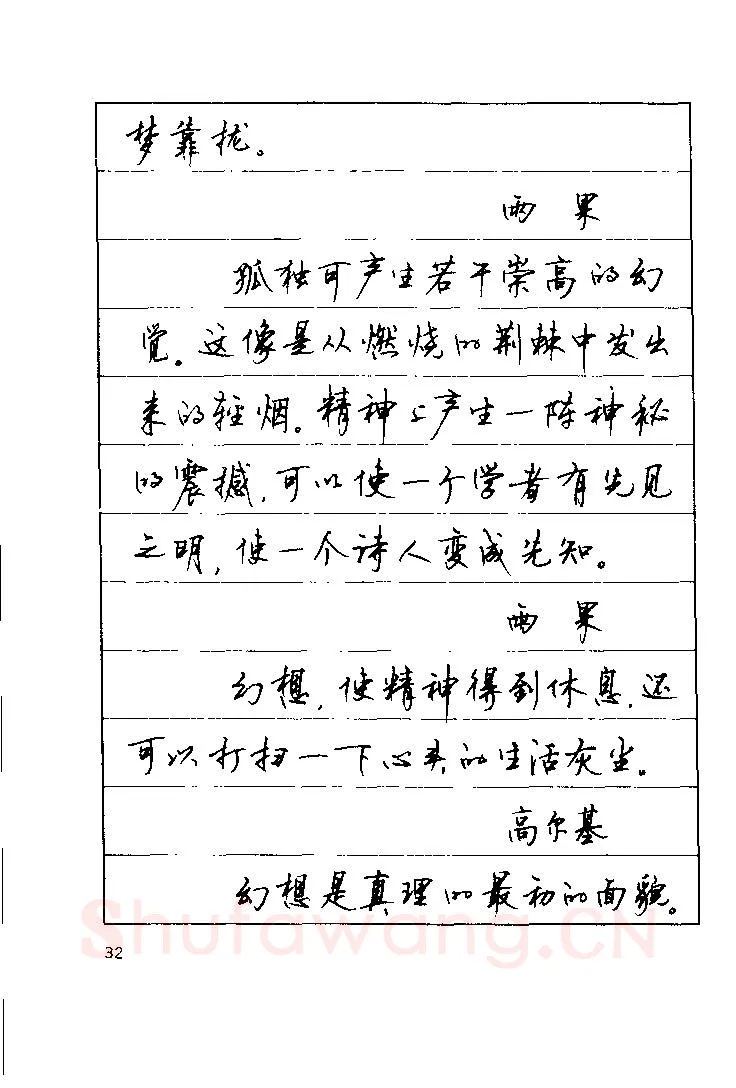 梦靠拢。
雨果
孤独可产生若干崇高的幻
觉。这像是从燃烧的荆棘中发出
来的轻烟。精神上产生一阵神秘
的震撼,可以使一个学者有先见
之明,使一个诗人变成先知。
雨果
幻想,使精神得到休息,还
可以打扫一下心头的生活灰尘。
高尔基
幻想是真理的最初的面貌。
Shufawang.CN
32